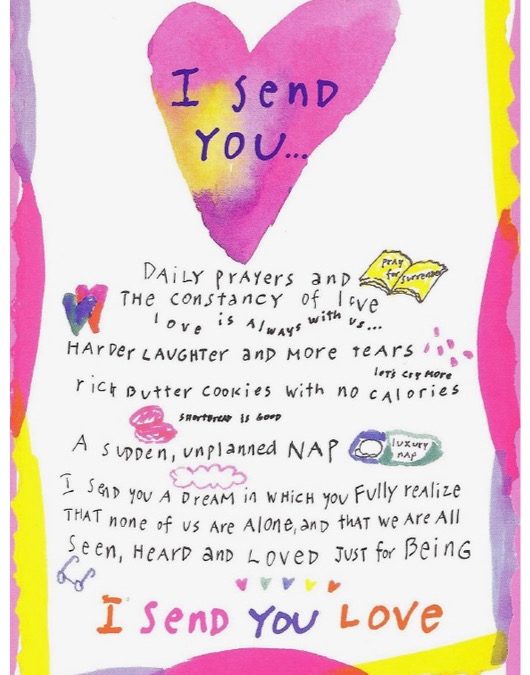 I Send
YOU...
DAILY PRAYERS and
PRAY for Surrender
THE CONSTANCY of love
love is Always with us...
HARDER LAUGHTER and MORE TEARS
let's cry more
rich Butter Cookies with no CALORIES
SHORTBREAD IS GOOD
A SUDDEN, unplanned NAP
luxury
nap
I Send you A DREAM in WHICH you Fully Realize
THAT none of us ARE ALONE, and THAT we ARE All
Seen, HEARD and LOVED JUST for BEING
I Send YOU LOVE